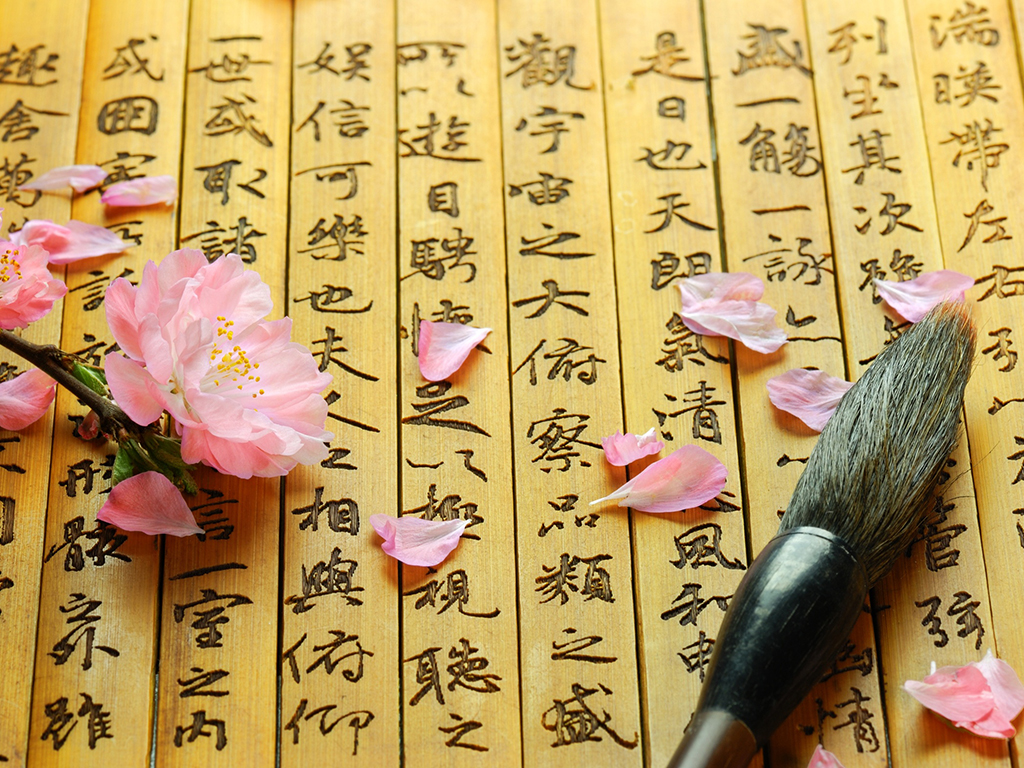 湍暎帶左右引
列坐其次雖管弦
盛一觴一詠情
是日也天朗氣清風和
觀宇宙之大俯察品類之盛
所以遊目騁懷足以極視聽之
娛信可樂也夫人之相與俯仰
一世或取諸言一室之內
或因寄所託形骸之外雖
趣舍萬